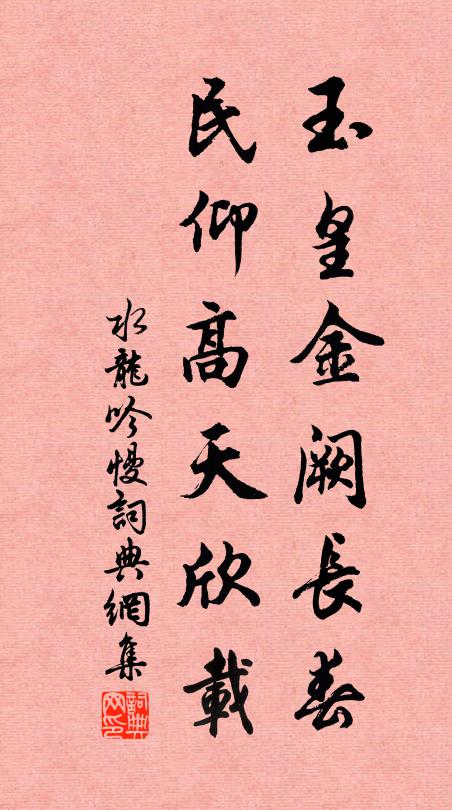 玉皇金闕長春
民仰高天欣載
水龍吟慢詞典網集
詞典网印